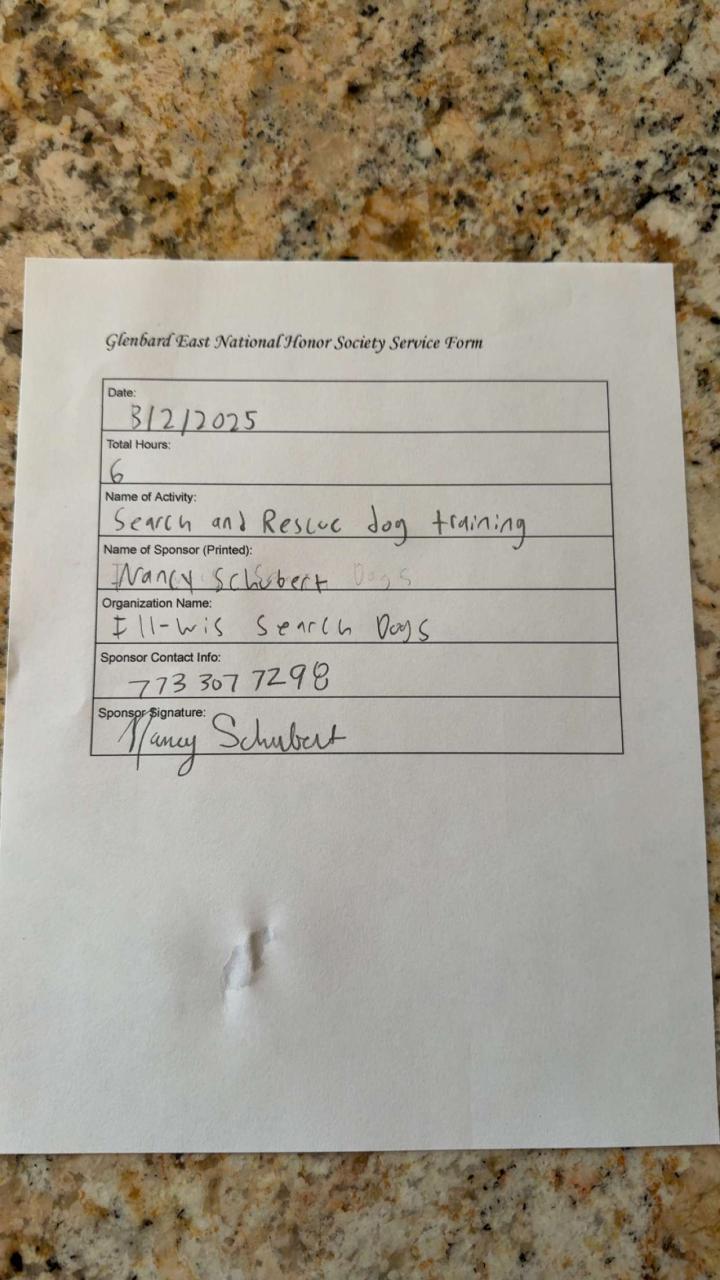 Glenbard East National Honor Society Service Form
Date:
8/2/2025
Total Hours:
6
Name of Activity:
Search and Rescue dog training
Name of Sponsor (Printed):
Nancy Schubert Dogs
Organization Name:
Ill-Wis Search Dogs
Sponsor Contact Info:
773 307 7298
Sponsor Signature:
Nancy Schubert